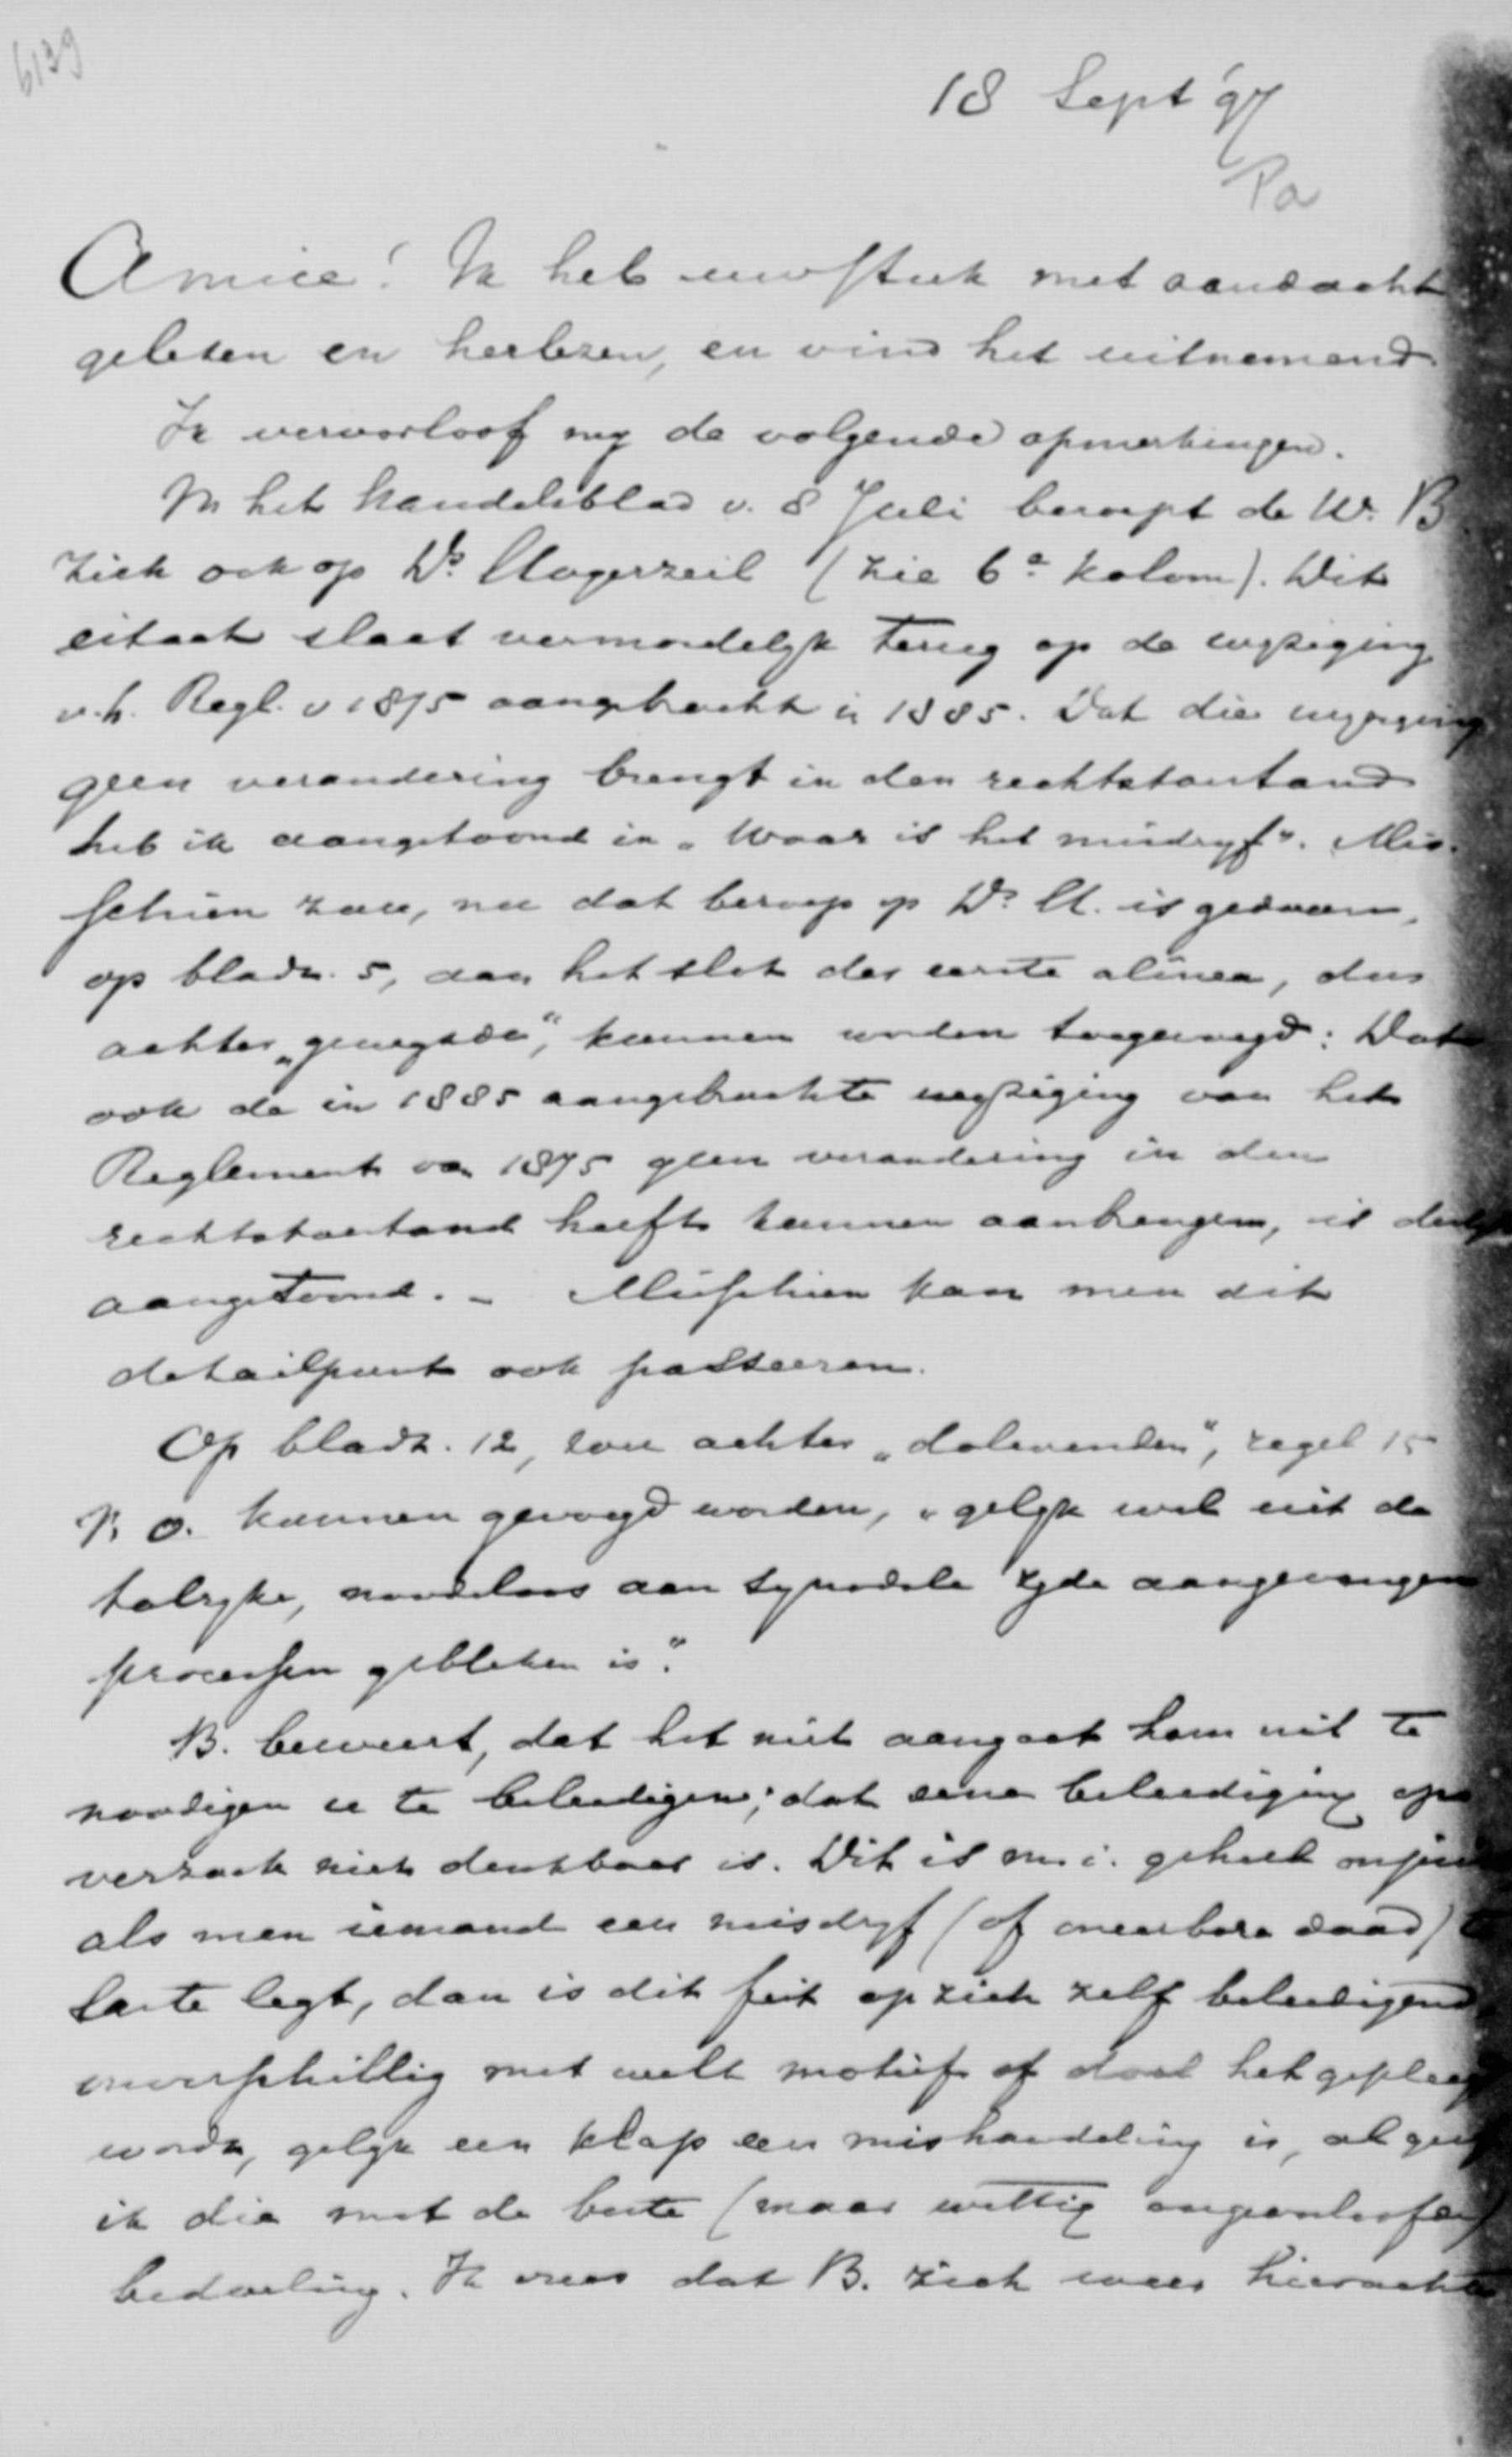 6139
18 Sept '97
Pa
Amice! Ik heb uw stuk met aandacht
gelezen en herlezen, en vind het uitnemend.
Ik veroorloof mij de volgende opmerkingen.
In het Handelsblad v. 8 Juli beroept de Hr. B
zich ook op Ds. Hogerzeil (zie 6e kolom). Dit
citaat slaat vermoedelijk terug op de wijziging
v.h. Regl. v 1875 aangebracht in 1885. Dat die wijziging
geen verandering brengt in den rechtstoestand
heb ik aangetoond in „Waar is het misdrijf". Mis-
schien zou, nu dat beroep op Ds. H. is gedaan,
op bladz. 5, aan het slot der eerste alinea, dus
achter „ ", kunnen worden toegevoegd: Dat
ook de in 1885 aangebrachte wijziging van het
Reglement van 1875 geen verandering in den
rechtstoestand heeft kunnen aanbrengen, is
aangetoond. – Misschien kan men dit
detailpunt ook passeeren.
Op bladz. 12, zou achter „doleerenden", regel 15
v. o. kunnen gevoegd worden, „gelijk wel uit de
talrijke, noodeloos aan synodale zijde aangevangen
processen gebleken is".
B. beweert, dat het niet aangaat hem uit te
noodigen u te beleedigen; dat eene beleediging op
verzoek niet denkbaar is. Dit is m. i. geheel onjuist
als men iemand een misdrijf (of oneerbare daad) te
laste legt, dan is dit feit op zich zelf beleedigend
onverschillig met welk motief of doel het gepleegd
wordt, gelijk een klap een mishandeling is, al geef
ik die met de beste (maar wettig ongeoorloofde)
bedoeling. Ik vrees dat B. zich weer hierachter